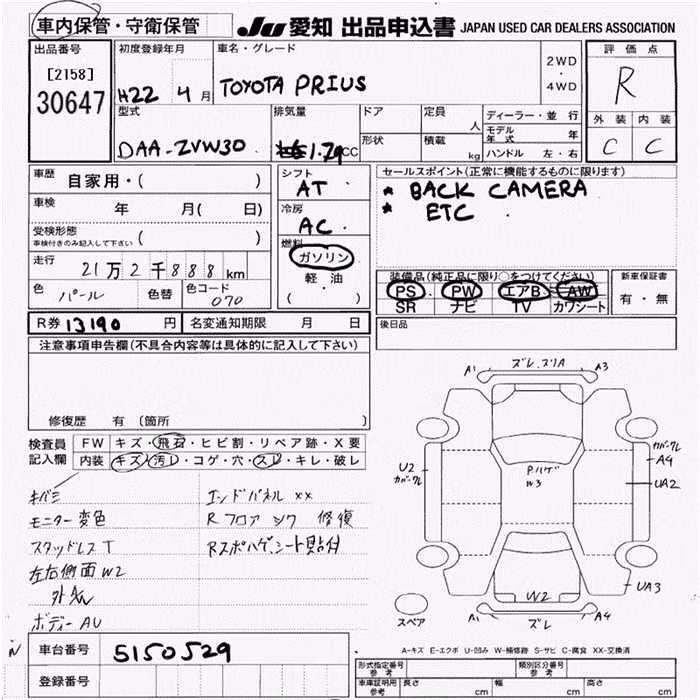 車内保管・守衛保管
JU 愛知 出品申込書 JAPAN USED CAR DEALERS ASSOCIATION
出品番号
[2158]
30647
初度登録年月
H22 4月
車名・グレード
TOYOTA PRIUS
2WD
・
4WD
評価点
R
外装 内装
C C
型式
DAA-ZVW30
排気量
1.79CC
ドア
形状
定員
人
積載
kg
ディーラー・並行
モデル年式 年
ハンドル 左・右
車歴 自家用・( )
車検 年 月( 日)
受検形態
車検付きのみ記入して下さい ( )
走行 21万2千888km
色 パール 色替 色コード 070
シフト
AT
冷房
AC
燃料
ガソリン
軽油
( )
セールスポイント(正常に機能するものに限ります)
* BACK CAMERA
* ETC
装備品(純正品に限り○をつけてください)
PS PW エアB AW
SR ナビ TV カワシート
新車保証書
有・無
R券 13190円 名変通知期限 月 日
後日品
注意事項申告欄(不具合内容等は具体的に記入して下さい)
修復歴 有 〔箇所 〕
検査員記入欄
FW キズ・飛石・ヒビ割・リペア跡・X要
内装 キズ・汚レ・コゲ・穴・スレ・キレ・破レ
キバミ エンドパネル XX
モニター変色 Rフロア シワ 修復
スタッドレスT Rスポハゲ、シート貼付
左右側面W2
ボディーAU
A1 ズレ、スリA A3
U2
カバークレ
PハゲW3
カバークレ
A4
UA2
W2
UA3
A1 ズレ A4
スペア
A-キズ E-エクボ U-凹み W-補修跡 S-サビ C-腐食 XX-交換済
N
車台番号 5150529
登録番号
形式指定番号
参考
類別区分番号
参考
車庫証明用
参考
長さ cm 幅 cm 高さ cm